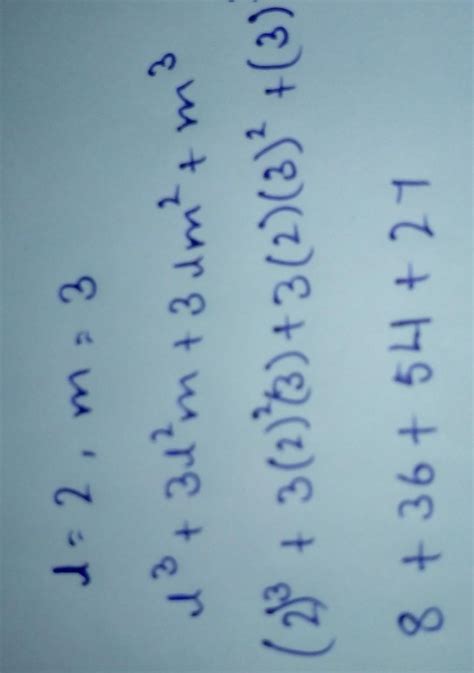 l = 2, m = 3
l³ + 3l²m + 3lm² + m³
(2)³ + 3(2)²(3) + 3(2)(3)² + (3)
8 + 36 + 54 + 27